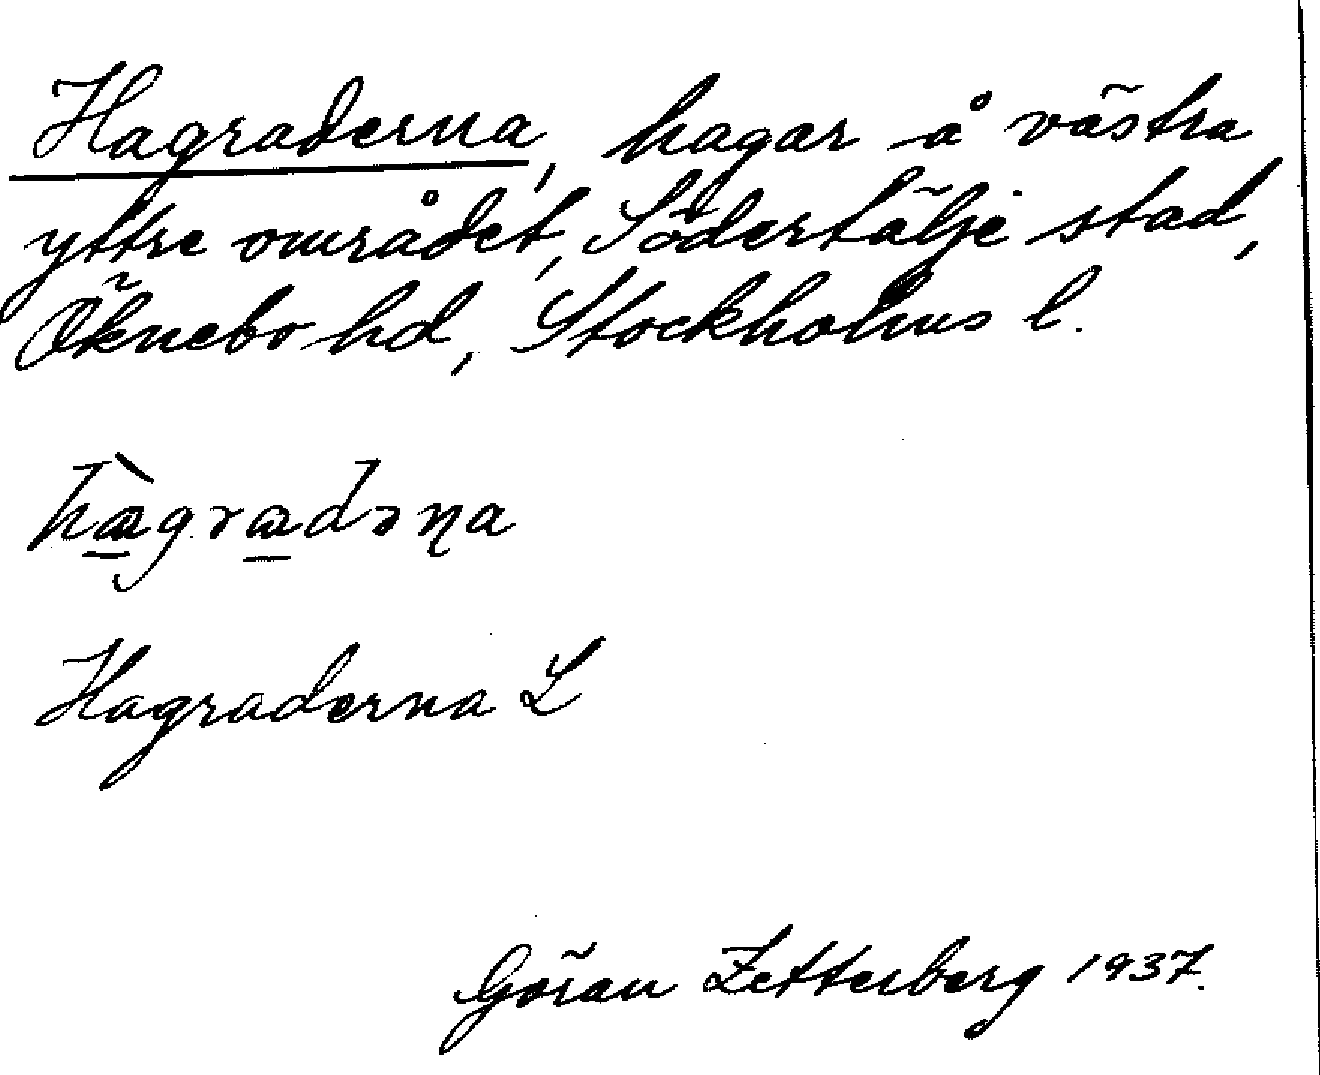 Hagraderna, hagar å västra
yttre området, Södertälje stad,
Öknebo hd, Stockholms l.
hàgradəṇa
Hagraderna L
Göran Zetterberg 1937.